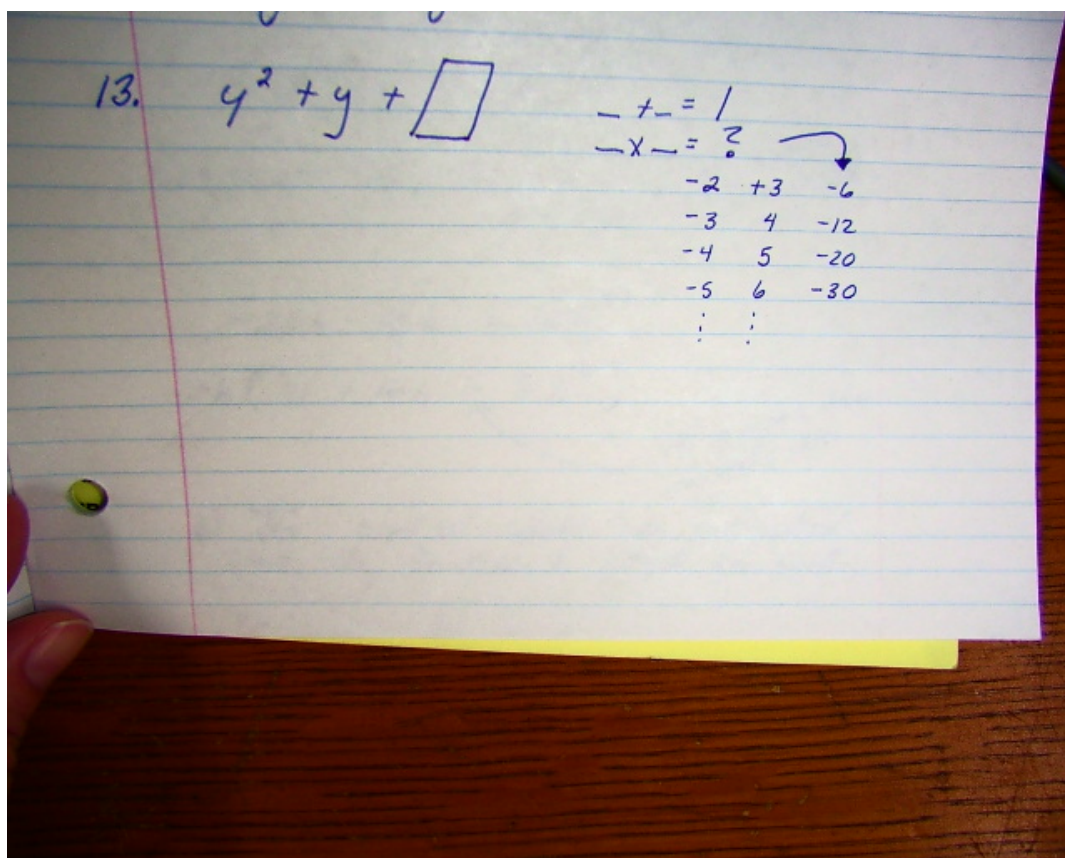 13. y² + y + □
_ + _ = 1
_ x _ = ?
-2 +3 -6
-3 4 -12
-4 5 -20
-5 6 -30
⋮ ⋮